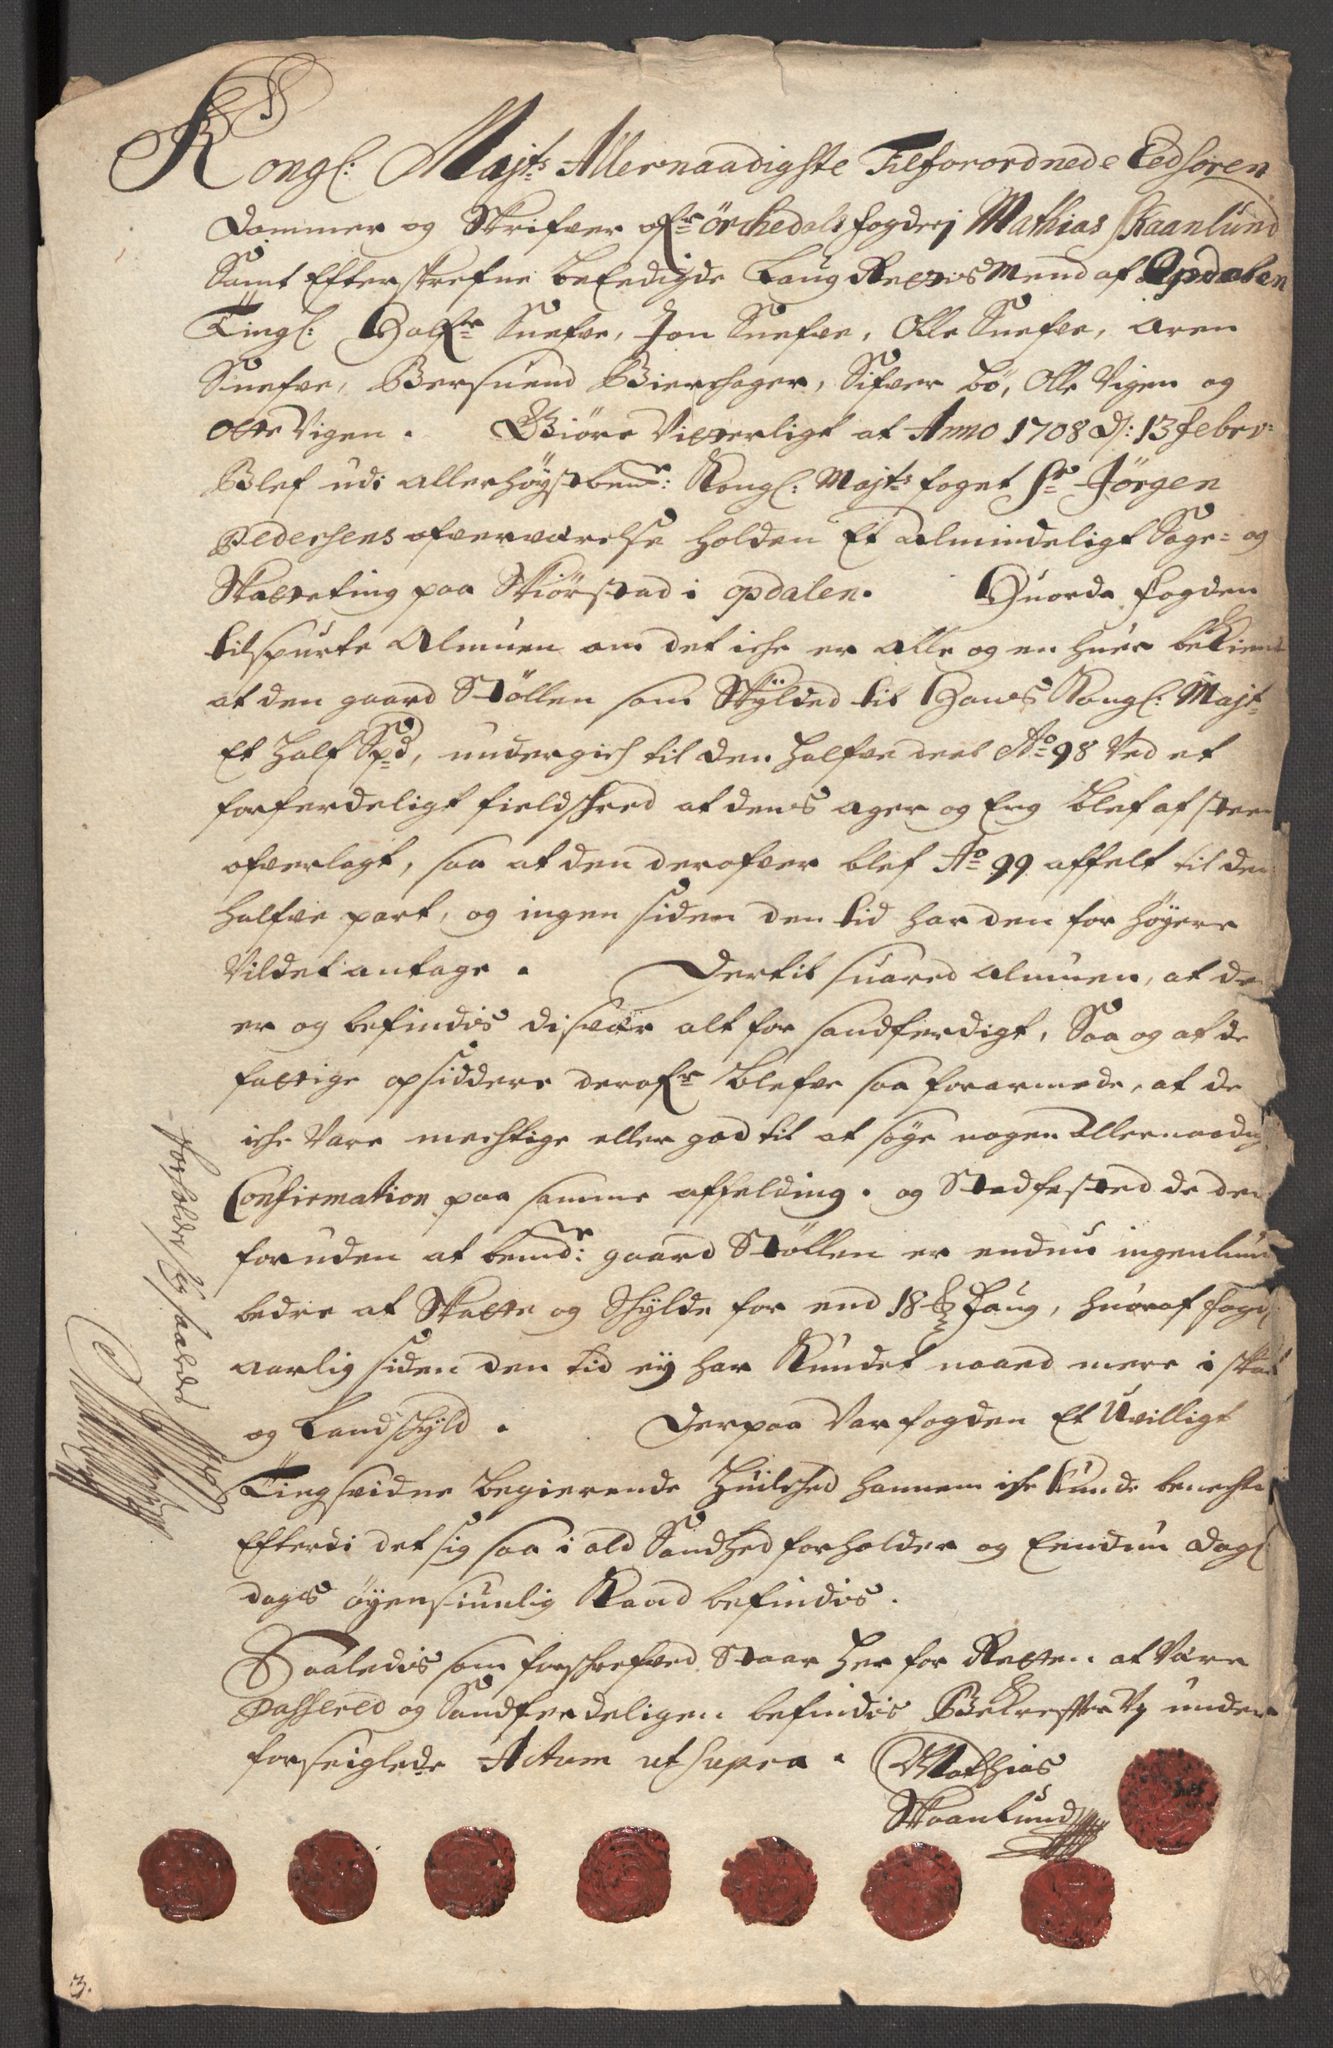 Kongl: Majts Allernaadigste Tilforordnede Eedsoren
Dommer og Skrifver ofr Örchedals fogderj Mathias Skaanlund
Samt Efterskrefne beEedigde Laug Rettis Mend af Opdalen
Tingl: Halfr Snefve, Jon Snefve, Olle Snefve, Aren
Snefve, Bersuend Bierchager, Sifver bö, Olle Vigen og
Otte Vigen. Giöre Vitterligt at Anno 1708 d: 13 febrv:
Blef udi allerhöystbemte: Kongl: Majts foget Sr Jörgen
Pedersens ofverværelse holden Et Almindeligt Sage- og
Skatteting paa Skiörstad i opdalen. Huorda fogden
tilspurte Almuen om det iche er alle og en huer bekient
at den gaard Stöllen som Skylded til Hans Kongl: Majt
Et half Spd, undergich til den halfve deel Ao 98 Ved et
forferdeligt fieldschred at dens ager og Eng blef af steen
ofverlagt, saa at den derofver blef Ao 99 affelt til den
halfve part, og ingen siden den tid har den for höyere
Vildet antage. Dertil suared almuen, at de
er og befindis disvær alt for sandferdigt, Saa og at de
fattige opsiddere derofr blefve saa forarmede, at de
iche Vare mechtige eller god til at söge nogen Allernaadig
Confirmation paa samme affelding. og Stadfested de der
foruden at bemdte: gaard Stöllen er endnu ingenlunde
bedre at Skatte og Skylde for end 18 Laug, huoraf fogd
aarlig siden den tid ey har Kundet naaed mere i skat
og Landschyld. Derpaa Var fogden Et Uvilligt
Tingsvidne begierende Huilched hannem iche kunde benechte
Efterdi det sig saa i ald Sandhed forholder og Eendnu dagl
dags öyensiunlig Kand befindis.
Saaledis som forschrefved Staar her for Retten at Være
Passered og Sandferdeligen befindis Bekrefter Vj under
forseiglede Actum ut supra. Mathias
Skaanlund
forholder sig saaledes
3.